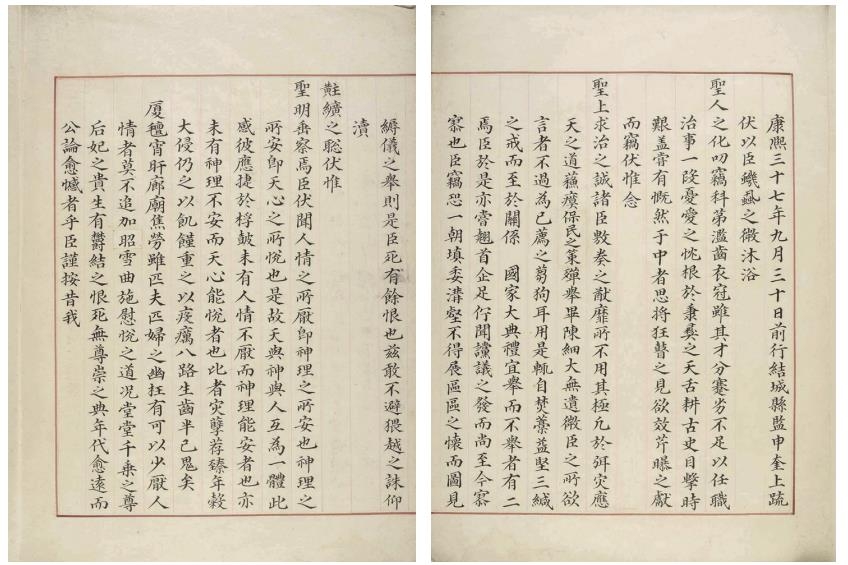 康熙三十七年九月三十日前行結城縣監申奎上疏
伏以臣蟣蝨之微沐浴
聖人之化叨竊科第濫齒衣冠雖其才分蹇劣不足以任職
治事一段憂愛之忱根於秉彝之天舌耕古史目擊時
艱盖甞有慨然于中者思將狂瞽之見欲效芹曝之獻
而竊伏惟念
聖上求治之誠諸臣敷奏之猷靡所不用其極允於弭灾應
天之道蘓瘼保民之策殫舉畢陳細大無遺微臣之所欲
言者不過為已薦之芻狗耳用是輒自焚藁益堅三緘
之戒而至於關係 國家大典禮宜舉而不舉者有二
焉臣於是亦甞翹首企足佇聞讜議之發而尚至今寥
寥也臣竊恐一朝填委溝壑不得展區區之懷而圖見
縟儀之舉則是臣死有餘恨也玆敢不避猥越之誅仰
瀆
黈纊之聡伏惟
聖明垂察焉臣伏聞人情之所厭卽神理之所安也神理之
所安卽天心之所悅也是故天與神與人互為一體此
感彼應捷於桴皷未有人情不厭而神理能安者也亦
未有神理不安而天心能悅者也比者灾孽荐臻年穀
大侵仍之以飢饉重之以疫癘八路生齒半已鬼矣
厦氊宵旰廊廟焦勞雖匹夫匹婦之幽抂有可以少厭人
情者莫不追加昭雪曲施慰悅之道况堂堂千乘之尊
后妃之貴生有欝結之恨死無尊崇之典年代愈遠而
公論愈憾者乎臣謹按昔我